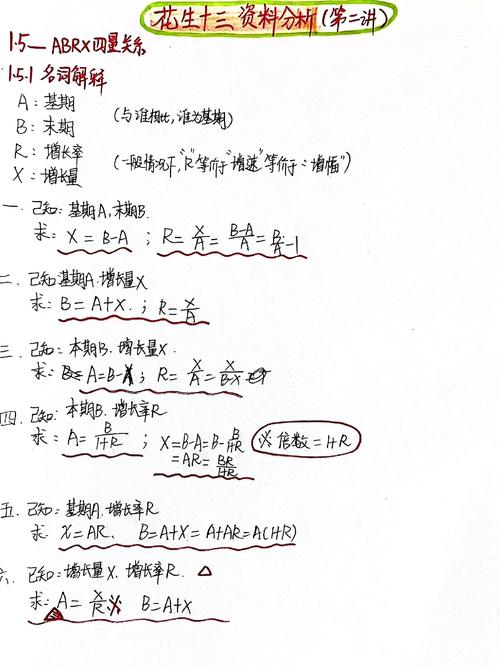 花生十三 资料分析(第二讲)
1.5—ABRX四量关系
1.5.1 名词解释
A:基期
B:末期 (与谁相比,谁为基期)
R:增长率
X:增长量 (一般情况下,"R"等价于"增速"等价于:"增幅")
一、已知:基期A,末期B.
求:X=B-A ; R=X/A=B-A/A=B/A-1
二、已知基期A.增长量X
求:B=A+X. ; R=X/A
三、已知:本期B.增长量X.
求:A=B-X; R=X/A=X/B-X
四、已知:本期B.增长率R
求:A=B/1+R ; X=B-A=B-B/1+R ※倍数=1+R
=AR=BR/1+R
五、已知:基期A.增长率R
求 X=AR、 B=A+X=A+AR=A(1+R)
六、已知:增长量X.增长率R. △
求:A=X/R※ B=A+X